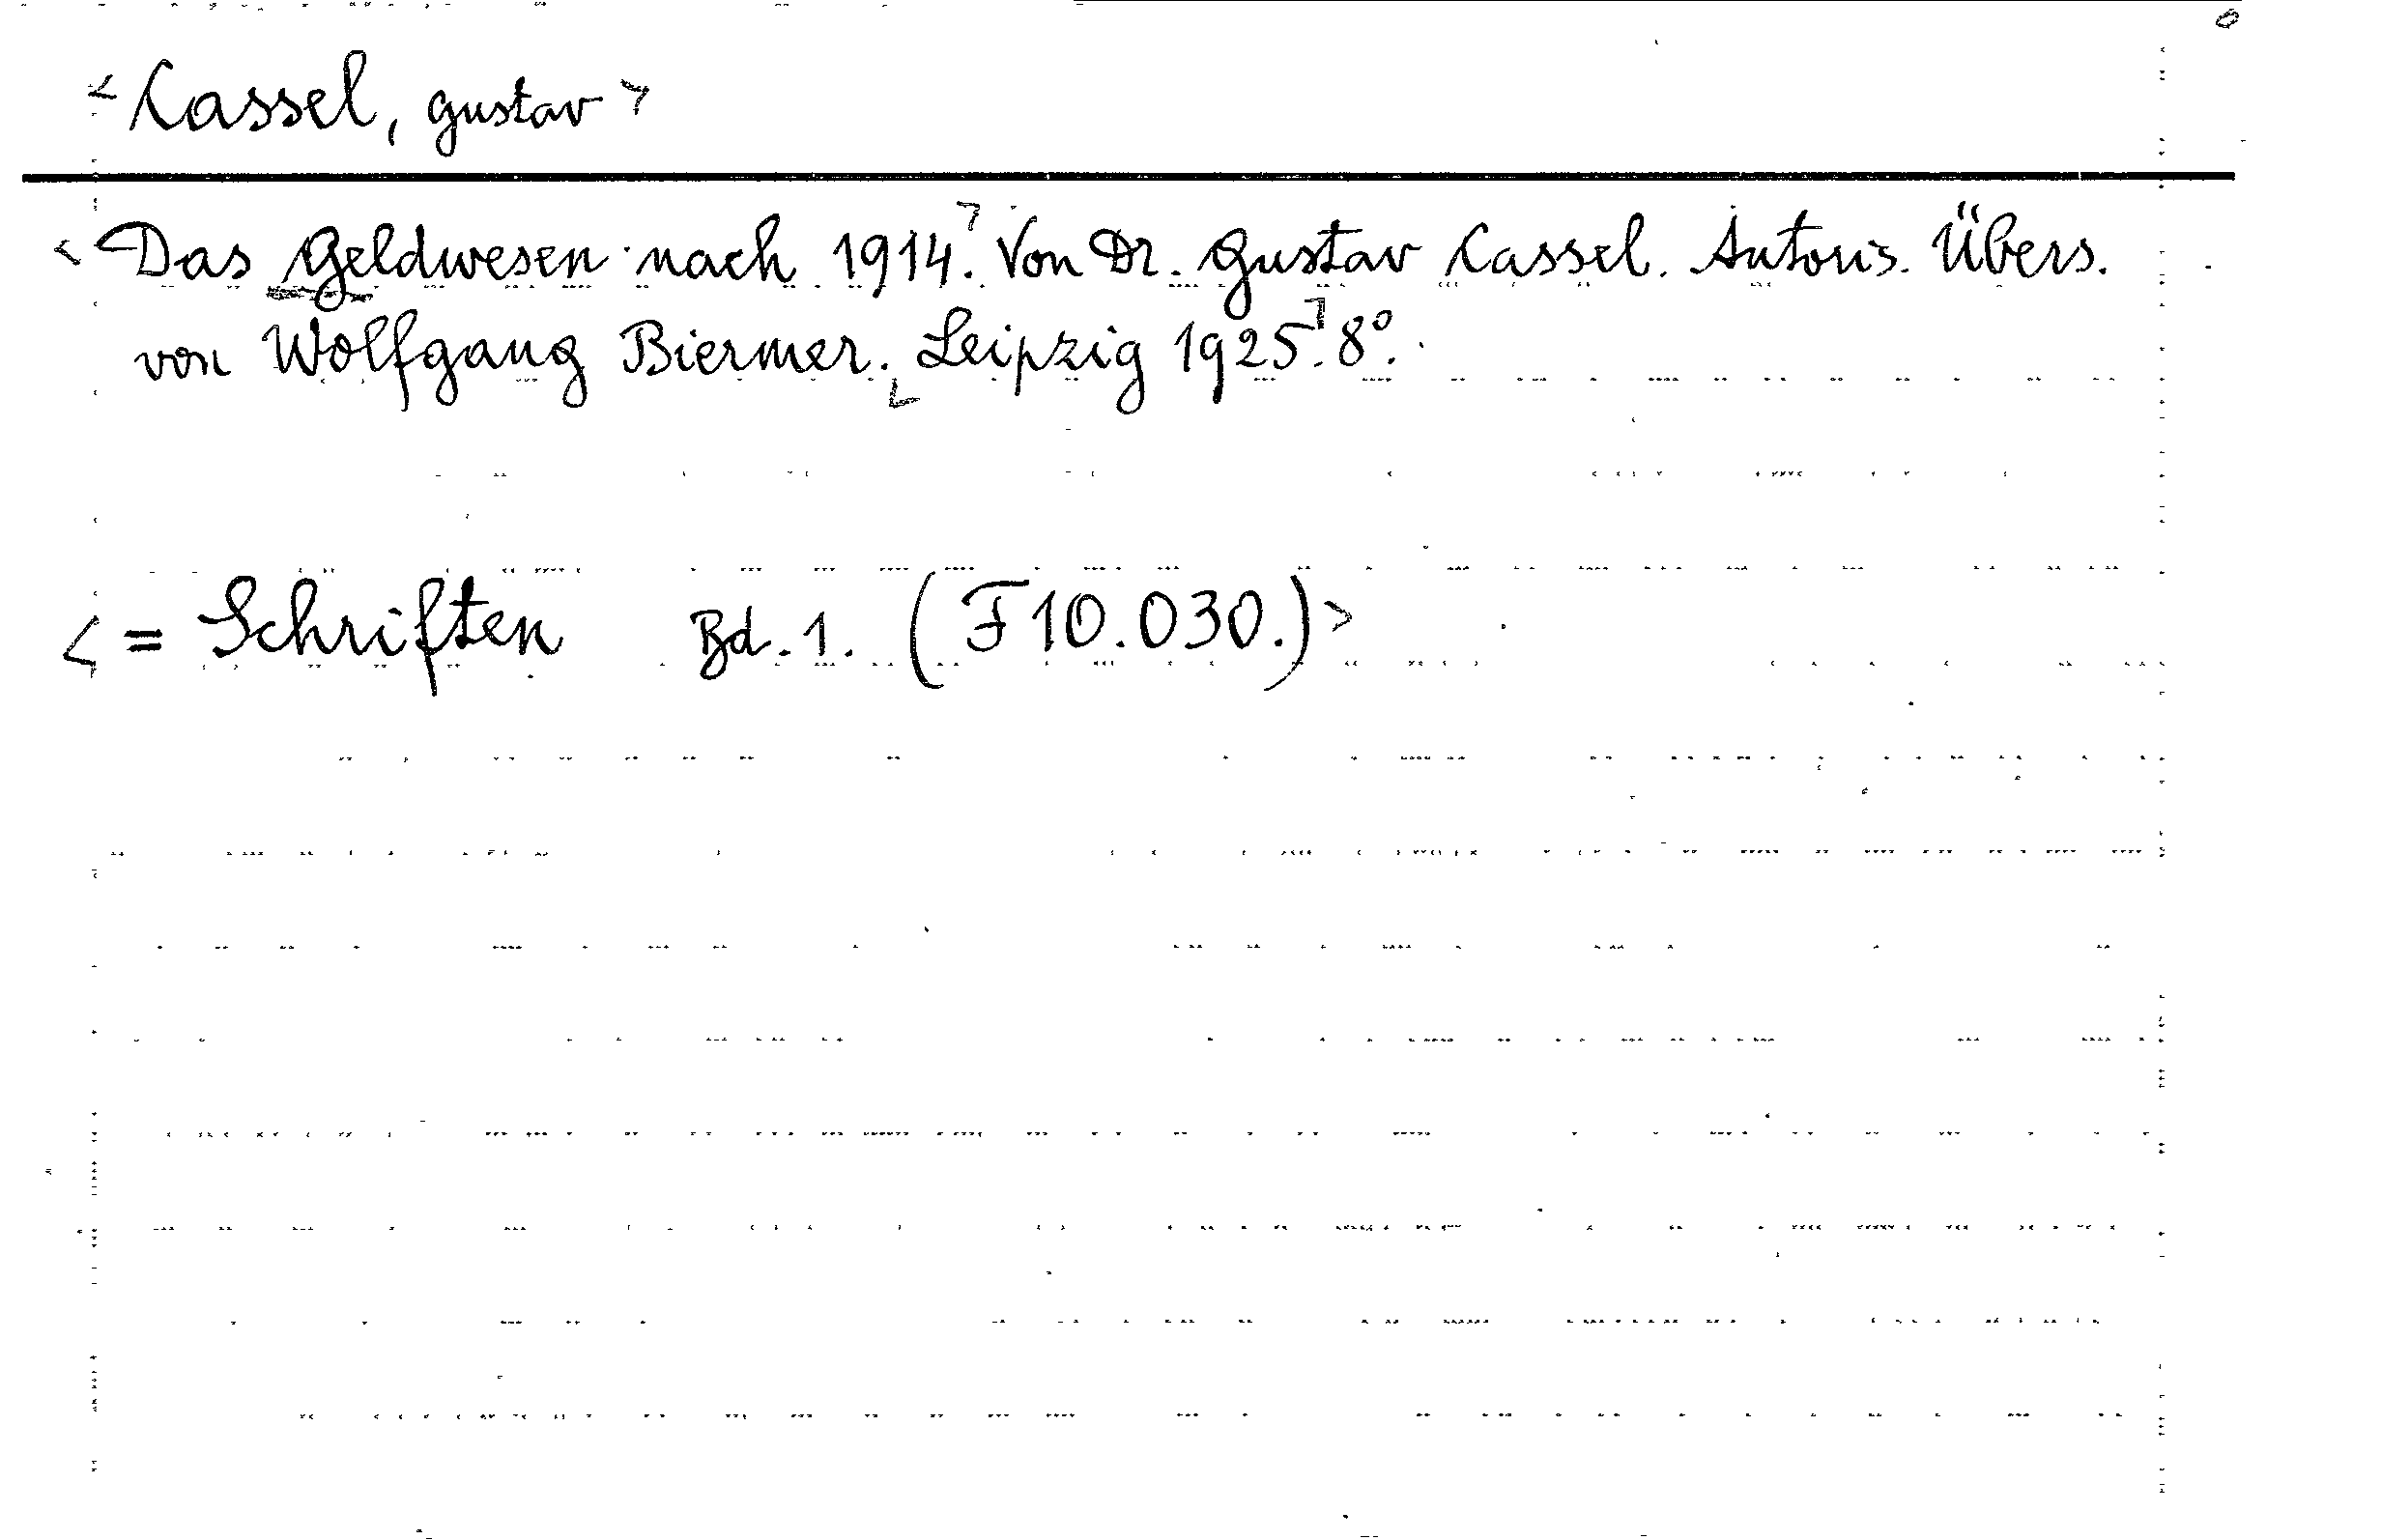 < Cassel, Gustav >
< Das Geldwesen nach 1914. Von Dr. Gustav Cassel. Autoris. Übers.
von Wolfgang Biermer. Leipzig 1925. 8°.
< = Schriften Bd. 1. (F 10.030.) >